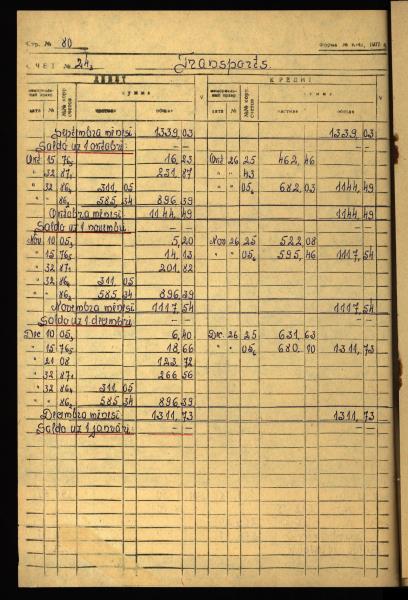 Стр. № 80
СЧЕТ № 24₃ Transports.
ДЕБЕТ КРЕДИТ
сумма сумма
дата № частная общая V дата № частная общая V
Septembra mēnesī 1339,03 1339,03
Saldo uz 1 oktobri: — — — —
Okt 15 76₅ 16,23 Okt 26 25 462,46
" 32 87₁ 231,87 " " 43
" 32 86₄ 311,05 " " 05₆ 682,03 1144,49
" 86₂ 585,34 896,39
Oktobra mēnesī 1144,49 1144,49
Saldo uz 1 novembri — — — —
Nov. 10 05₃ 5,20 Nov 26 25 522,08
" 15 76₅ 14,13 " " 05₆ 595,46 1117,54
" 32 87₁ 201,82
" 32 86₄ 311,05
" 86₂ 585,34 896,39
Novembra mēnesī 1117,54 1117,54
Saldo uz 1 decembri — — — —
Dec 10 05₃ 6,40 Dec. 26 25 631,63
" 15 76₅ 18,66 " " 05₆ 680,10 1311,73
" 21 08 123,72
" 32 87₁ 266,56
" 32 86₄ 311,05
" " 86₂ 585,34 896,39
Decembra mēnesī 1311,73 1311,73
Saldo uz 1 janvāri: — — — —